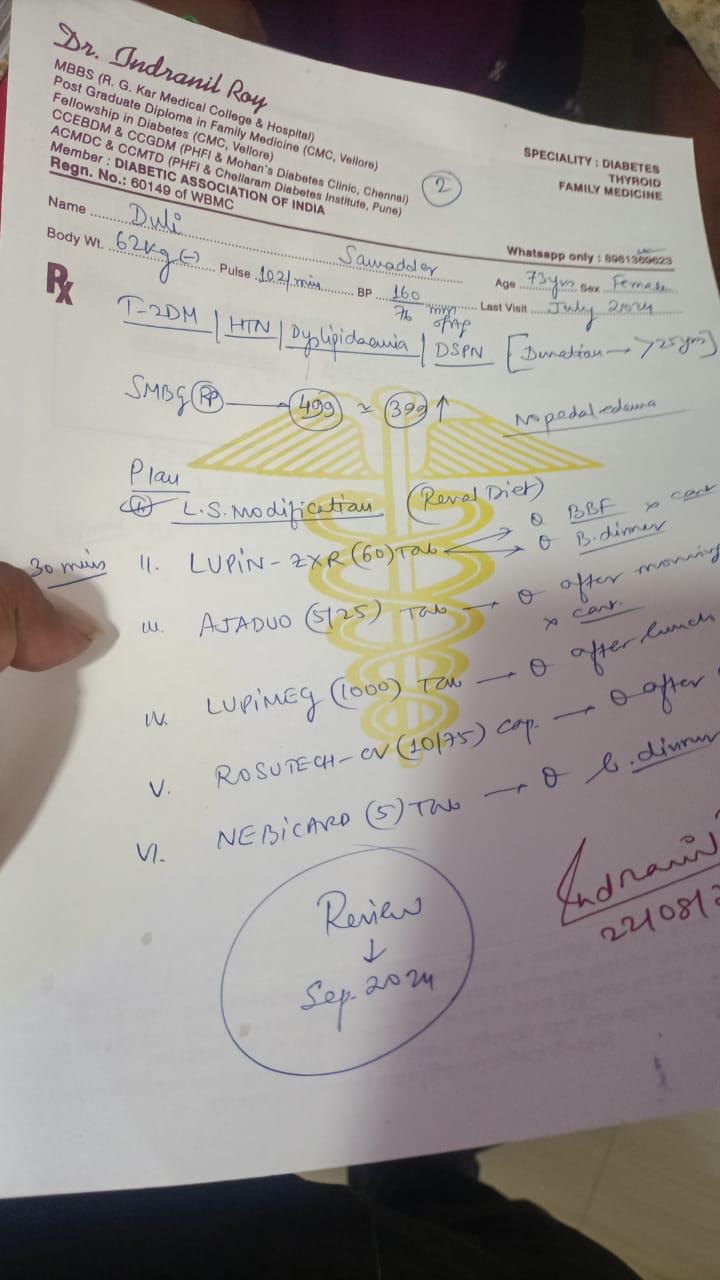 Dr. Indranil Roy
MBBS (R. G. Kar Medical College & Hospital)
Post Graduate Diploma in Family Medicine (CMC, Vellore)
Fellowship in Diabetes (CMC, Vellore)
CCEBDM & CCGDM (PHFI & Mohan's Diabetes Clinic, Chennai)
ACMDC & CCMTD (PHFI & Chellaram Diabetes Institute, Pune)
Member : DIABETIC ASSOCIATION OF INDIA
Regn. No.: 60149 of WBMC
2
SPECIALITY : DIABETES
THYROID
FAMILY MEDICINE
Whatsapp only : 8981369623
Name Duli Samadder Age 73yrs Sex Female
Body Wt. 62kg (-) Pulse 102/min BP 160/76 Last Visit July 2024
Rx
T-2DM | HTN | Dyslipidaemia | DSPN [Duration → >25yrs]
SMBG RP 499 ≈ 399 ↑
No pedal edema
Plan
L.S. Modification (Renal Diet)
30 mins II. LUPIN-ZXR (60) Tab BBF x cont
B. dinner
III. AJADUO (5/25) Tab → after morning
x cont.
IV. LUPIMEG (1000) Tab → after lunch
V. ROSUTECH-CV (10/75) cap. → after
VI. NEBICARD (5) Tab → b. dinner
Indranil
22/08/2
Review
↓
Sep. 2024